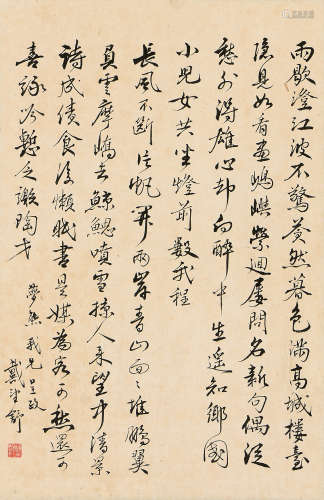 雨歇澄江波不驚蒼然暮色滿高城樓臺
隱見如看畫島嶼縈迴屢問名新句偶從
愁外得雄心却向醉中生遙知鄉國
小兒女共坐燈前數我程
長風不斷片帆開兩岸青山面面堆鵬翼
負雲摩島去鯨鰓噴雪撩人來望中清景
詩成債食後懶職書是媒為客可無還可
喜詠吟慙乏謝陶才
夢熊我兄正政
戴季舒